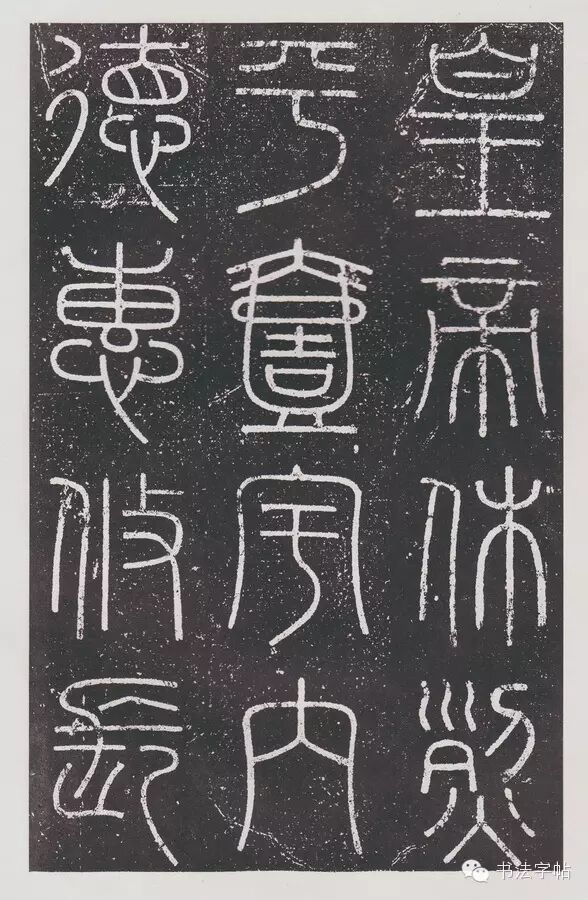 皇帝休烈
平壹宇內
德惠攸長
书法字帖